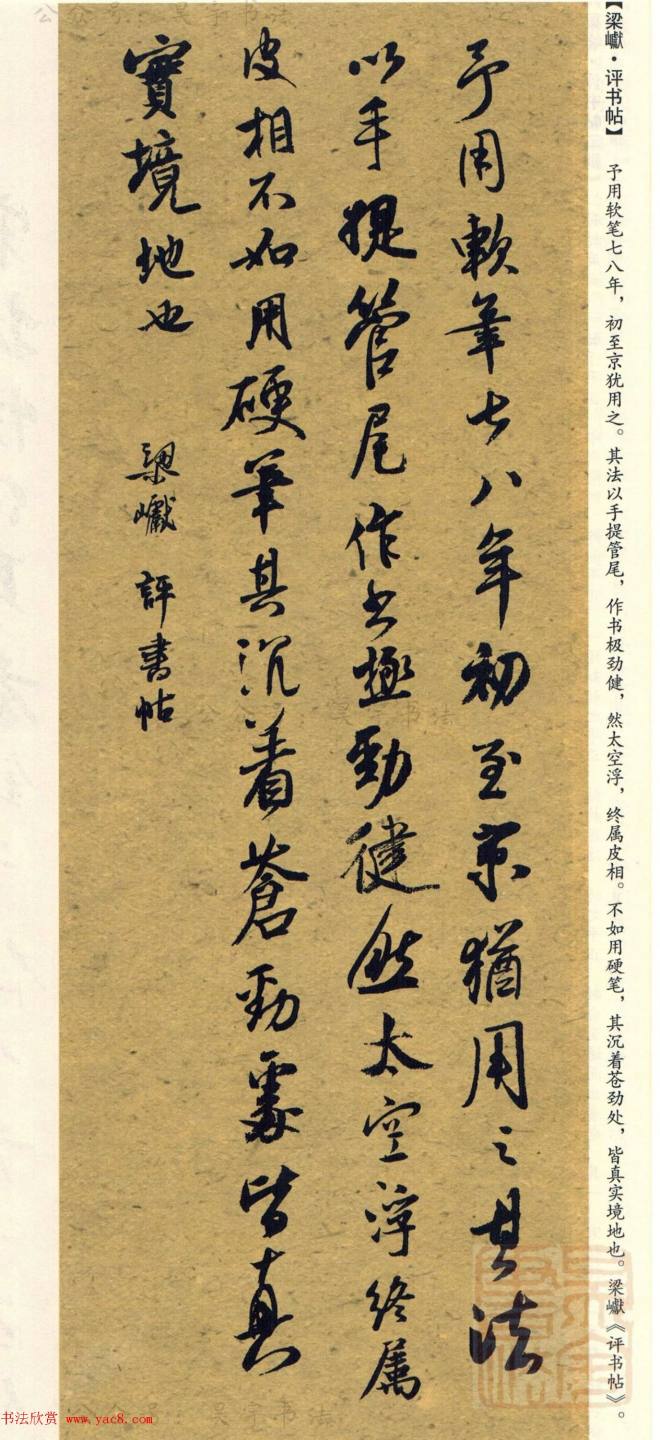 【梁巘·评书帖】 予用软笔七八年，初至京犹用之。其法以手提管尾，作书极劲健，然太空浮，终属皮相。不如用硬笔，其沉着苍劲处，皆真实境地也。梁巘《评书帖》。
予用軟筆七八年初至京猶用之其法
以手提管尾作书極勁健然太空浮終属
皮相不如用硬筆其沉着蒼勁處皆真
實境地也
梁巘 評書帖
公众号：吴宇书法
公众号：吴宇书法
公众号：吴宇书法
书法欣赏 www.yac8.com